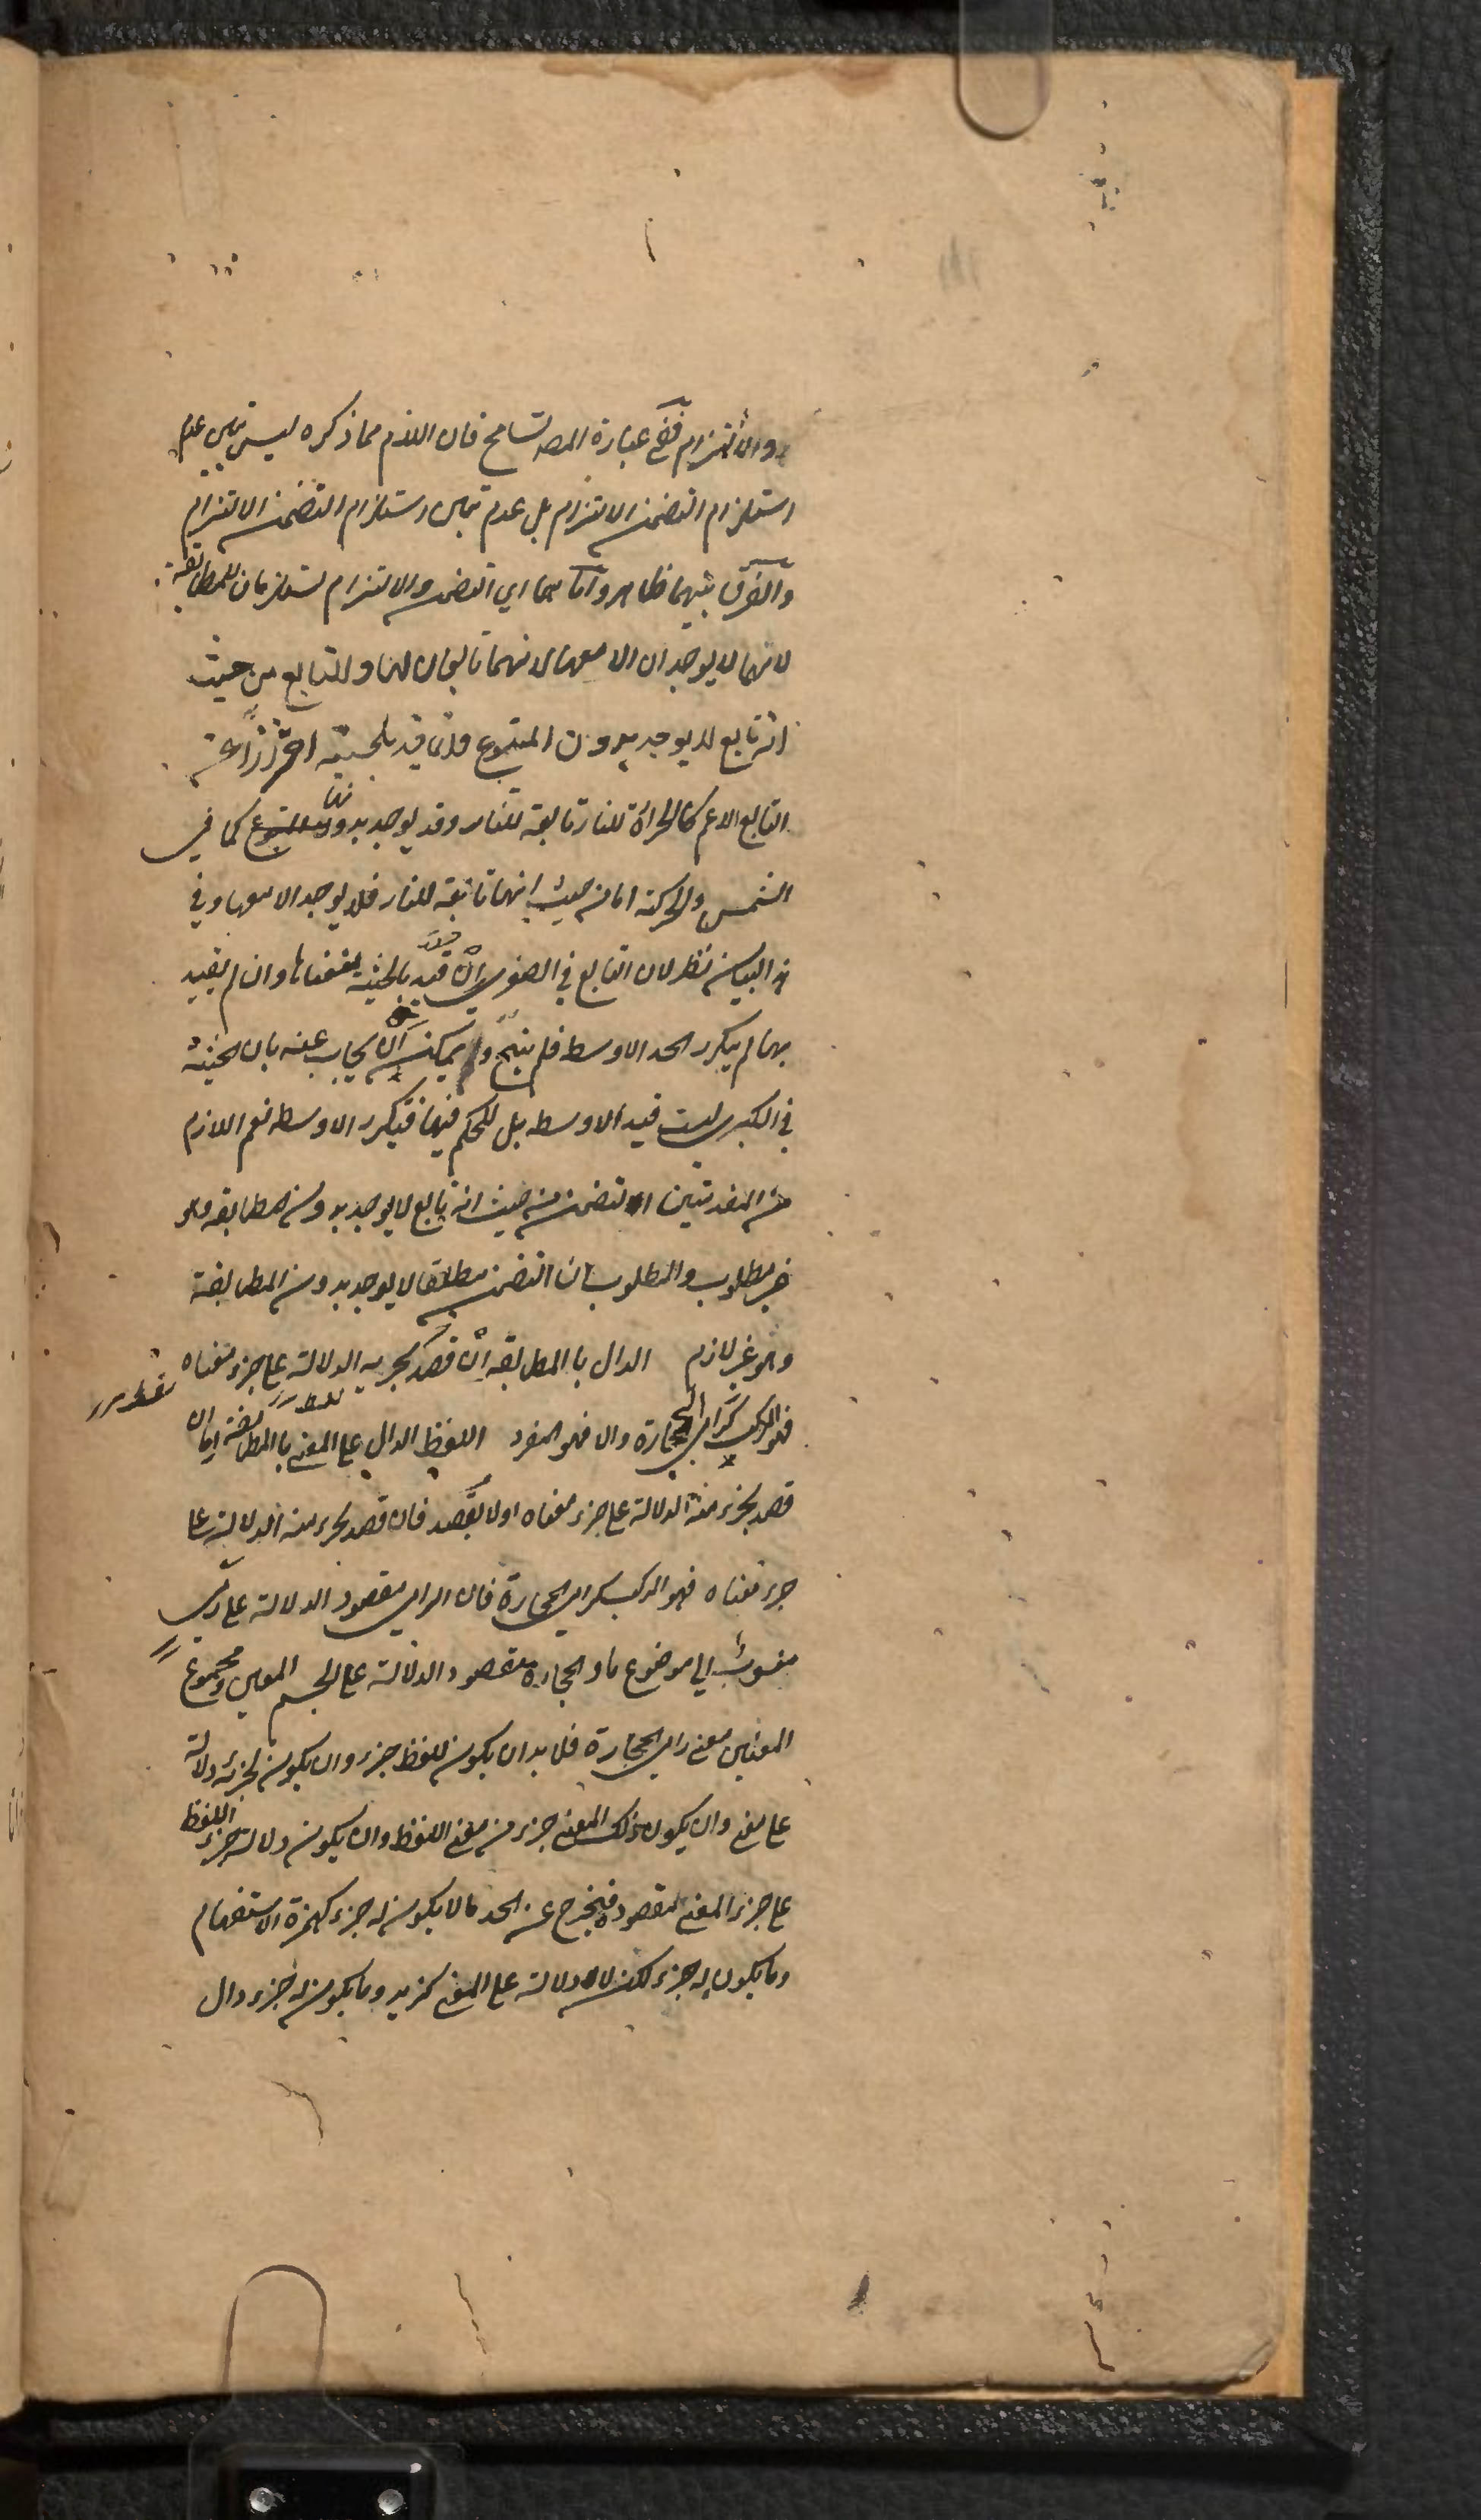 والالتزام ففي عبارة المصـ تسامح فان اللازم مما ذكره ليس تبين عدم
استلزام التضمن الالتزام بل عدم تبين استلزام التضمن الالتزام
والفرق بينهما ظاهر واما هما اي التضمن والالتزام لمستلزمان للمطابقة
لانهما لا يوجدان الا معها لانهما تابعان لها والتابع من حيث
انه تابع لا يوجد بدون المتبوع وانما قيد بالحيثية احترازا عن
التابع الاعم كالحرارة للنار تابعة للنار وقد يوجد بدونها كما في
الشمس والحركة اما من حيث انها تابعة للنار فلا يوجد الا معها وفي
هذا البيان نظر لان التابع في الصغرى ان قيد بالحيثية منعناها وان لم يقيد
بها لم يتكرر الحد الاوسط فلم ينتج ويمكن ان يجاب عنه بان الحيثية
في الكبرى ليست قيد الاوسط بل للحكم فيها فيتكرر الاوسط نعم اللازم
من المقدمتين ان التضمن من حيث انه تابع لا يوجد بدون المطابقة وهو
غير مطلوب والمطلوب ان التضمن مطلقا لا يوجد بدون المطابقة
وهو غير لازم الدال بالمطابقة ان قصد بجزء به الدلالة على جزء معناه
فهو المركب كرامي الحجارة والا فهو المفرد اللفظ الدال على المعنى بالمطابقة اما ان
قصد بجزء منه الدلالة على جزء معناه اولا يقصد فان قصد بجزء منه الدلالة على
جزء معناه فهو المركب كرامي الحجارة فان الرامي مقصود الدلالة على رمي
منسوب الى موضوع ما والحجارة مقصود الدلالة على الجسم المعين ومجموع
المعنيين معنى رامي الحجارة فلا بد ان يكون للفظ جزء وان يكون لجزئه دلالة
على معنى وان يكون ذلك المعنى جزء من معنى اللفظ وان يكون دلالة جزء اللفظ
على جزء المعنى مقصودة فيخرج عن الحد ما لا يكون له جزء كهمزة الاستفهام
وما يكون له جزء لكن لا دلالة على المعنى كزيد وما يكون له جزء دال